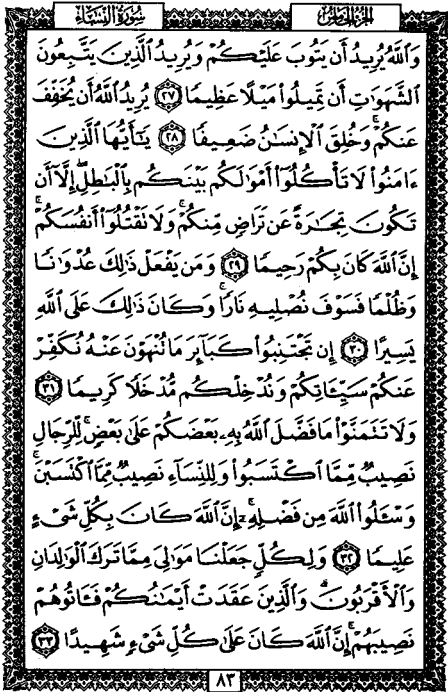 سورة النساء
الجزء الخامس
وَاللَّهُ يُرِيدُ أَن يَتُوبَ عَلَيْكُمْ وَيُرِيدُ الَّذِينَ يَتَّبِعُونَ
الشَّهَوَاتِ أَن تَمِيلُوا مَيْلًا عَظِيمًا ﴿٢٧﴾ يُرِيدُ اللَّهُ أَن يُخَفِّفَ
عَنكُمْ ۚ وَخُلِقَ الْإِنسَانُ ضَعِيفًا ﴿٢٨﴾ يَٰٓأَيُّهَا الَّذِينَ
ءَامَنُوا لَا تَأْكُلُوٓا أَمْوَٰلَكُم بَيْنَكُم بِالْبَٰطِلِ إِلَّآ أَن
تَكُونَ تِجَٰرَةً عَن تَرَاضٍ مِّنكُمْ ۚ وَلَا تَقْتُلُوٓا أَنفُسَكُمْ ۚ
إِنَّ اللَّهَ كَانَ بِكُمْ رَحِيمًا ﴿٢٩﴾ وَمَن يَفْعَلْ ذَٰلِكَ عُدْوَٰنًا
وَظُلْمًا فَسَوْفَ نُصْلِيهِ نَارًا ۚ وَكَانَ ذَٰلِكَ عَلَى اللَّهِ
يَسِيرًا ﴿٣٠﴾ إِن تَجْتَنِبُوا كَبَآئِرَ مَا تُنْهَوْنَ عَنْهُ نُكَفِّرْ
عَنكُمْ سَيِّـَٔاتِكُمْ وَنُدْخِلْكُم مُّدْخَلًا كَرِيمًا ﴿٣١﴾
وَلَا تَتَمَنَّوْا مَا فَضَّلَ اللَّهُ بِهِۦ بَعْضَكُمْ عَلَىٰ بَعْضٍ ۚ لِّلرِّجَالِ
نَصِيبٌ مِّمَّا اكْتَسَبُوا ۖ وَلِلنِّسَآءِ نَصِيبٌ مِّمَّا اكْتَسَبْنَ ۚ
وَسْـَٔلُوا اللَّهَ مِن فَضْلِهِۦٓ ۗ إِنَّ اللَّهَ كَانَ بِكُلِّ شَىْءٍ
عَلِيمًا ﴿٣٢﴾ وَلِكُلٍّ جَعَلْنَا مَوَٰلِىَ مِمَّا تَرَكَ الْوَٰلِدَانِ
وَالْأَقْرَبُونَ ۚ وَالَّذِينَ عَقَدَتْ أَيْمَٰنُكُمْ فَـَٔاتُوهُمْ
نَصِيبَهُمْ ۚ إِنَّ اللَّهَ كَانَ عَلَىٰ كُلِّ شَىْءٍ شَهِيدًا ﴿٣٣﴾
٨٣